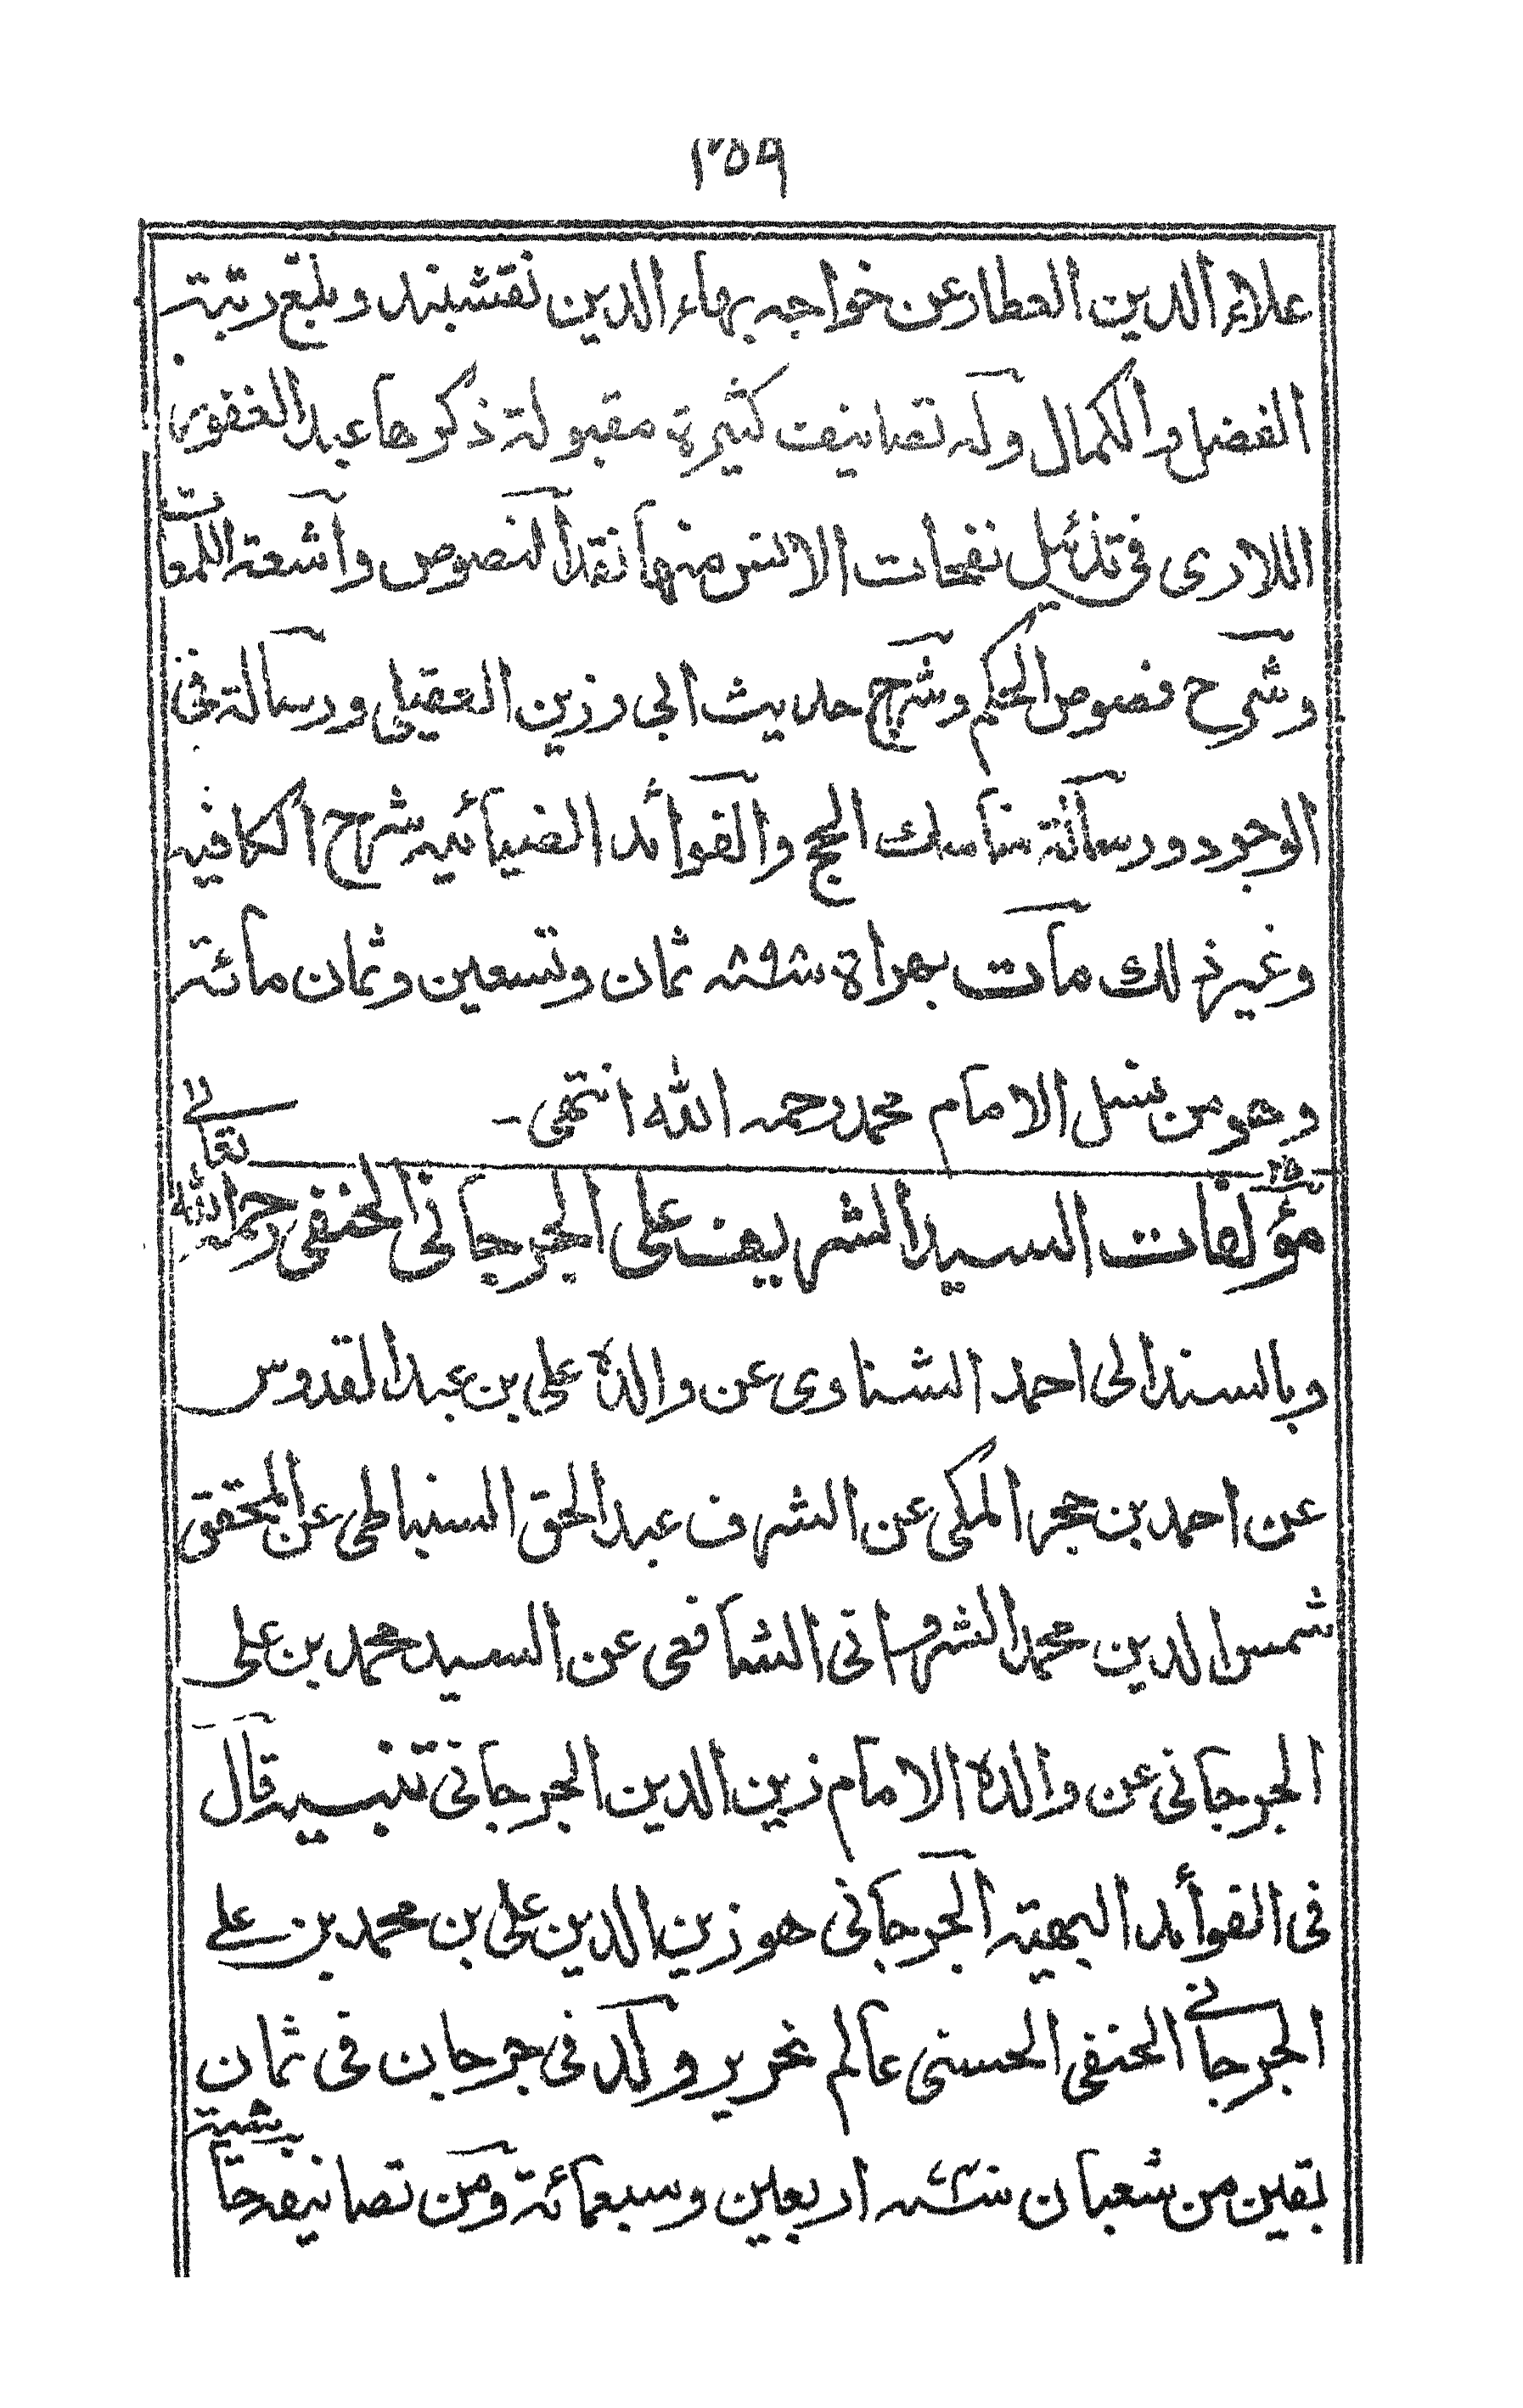 ٣٥٩
علاء الدين العطار عن خواجه بهاء الدين نقشبند وبلغ رتبة
الفضل والكمال وله تصانيف كثيرة مقبولة ذكرها عبد الغفور
اللاري في تذئيل نفحات الانس منها نقد النصوص واشعة اللمعات
وشرح فصوص الحكم وشرح حديث ابي رزين العقيلي ورسالة في
الوجود ورسالة مناسك الحج والفوائد الضيائيه شرح الكافيه
وغير ذلك مات بهراة ٨٩٨ سنه ثمان وتسعين وثمان مائة
وهو من نسل الامام محمد رحمه الله انتهى۔
٢٥ مؤلفات السيد الشريف علي الجرجاني الحنفي رحمه الله تعالى
وبالسند الى احمد الشناوي عن والده علي بن عبد القدوس
عن احمد بن حجر المكي عن الشرف عبد الحق السنباطي عن المحقق
شمس الدين محمد الشرواني الشافعي عن السعيد محمد بن علي
الجرجاني عن والده الامام زين الدين الجرجاني تنبيه قال
في الفوائد البهية الجرجاني هو زين الدين علي بن محمد بن علي
الجرجاني الحنفي الحسني عالم نحرير ولد في جرجان في ثمان
بقين من شعبان سنه اربعين وسبعمائة ومن تصانيفه حاشية